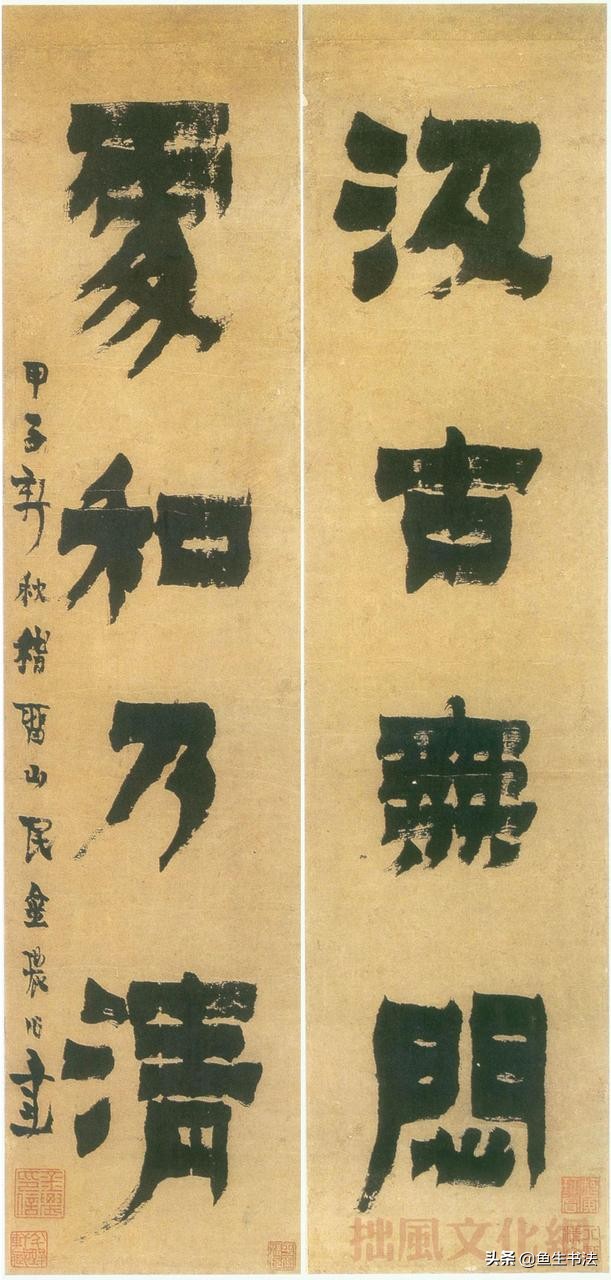 汲古無悶
處和乃清
甲子新秋稽留山民金農
拙風文化網
头条 @鱼生书法